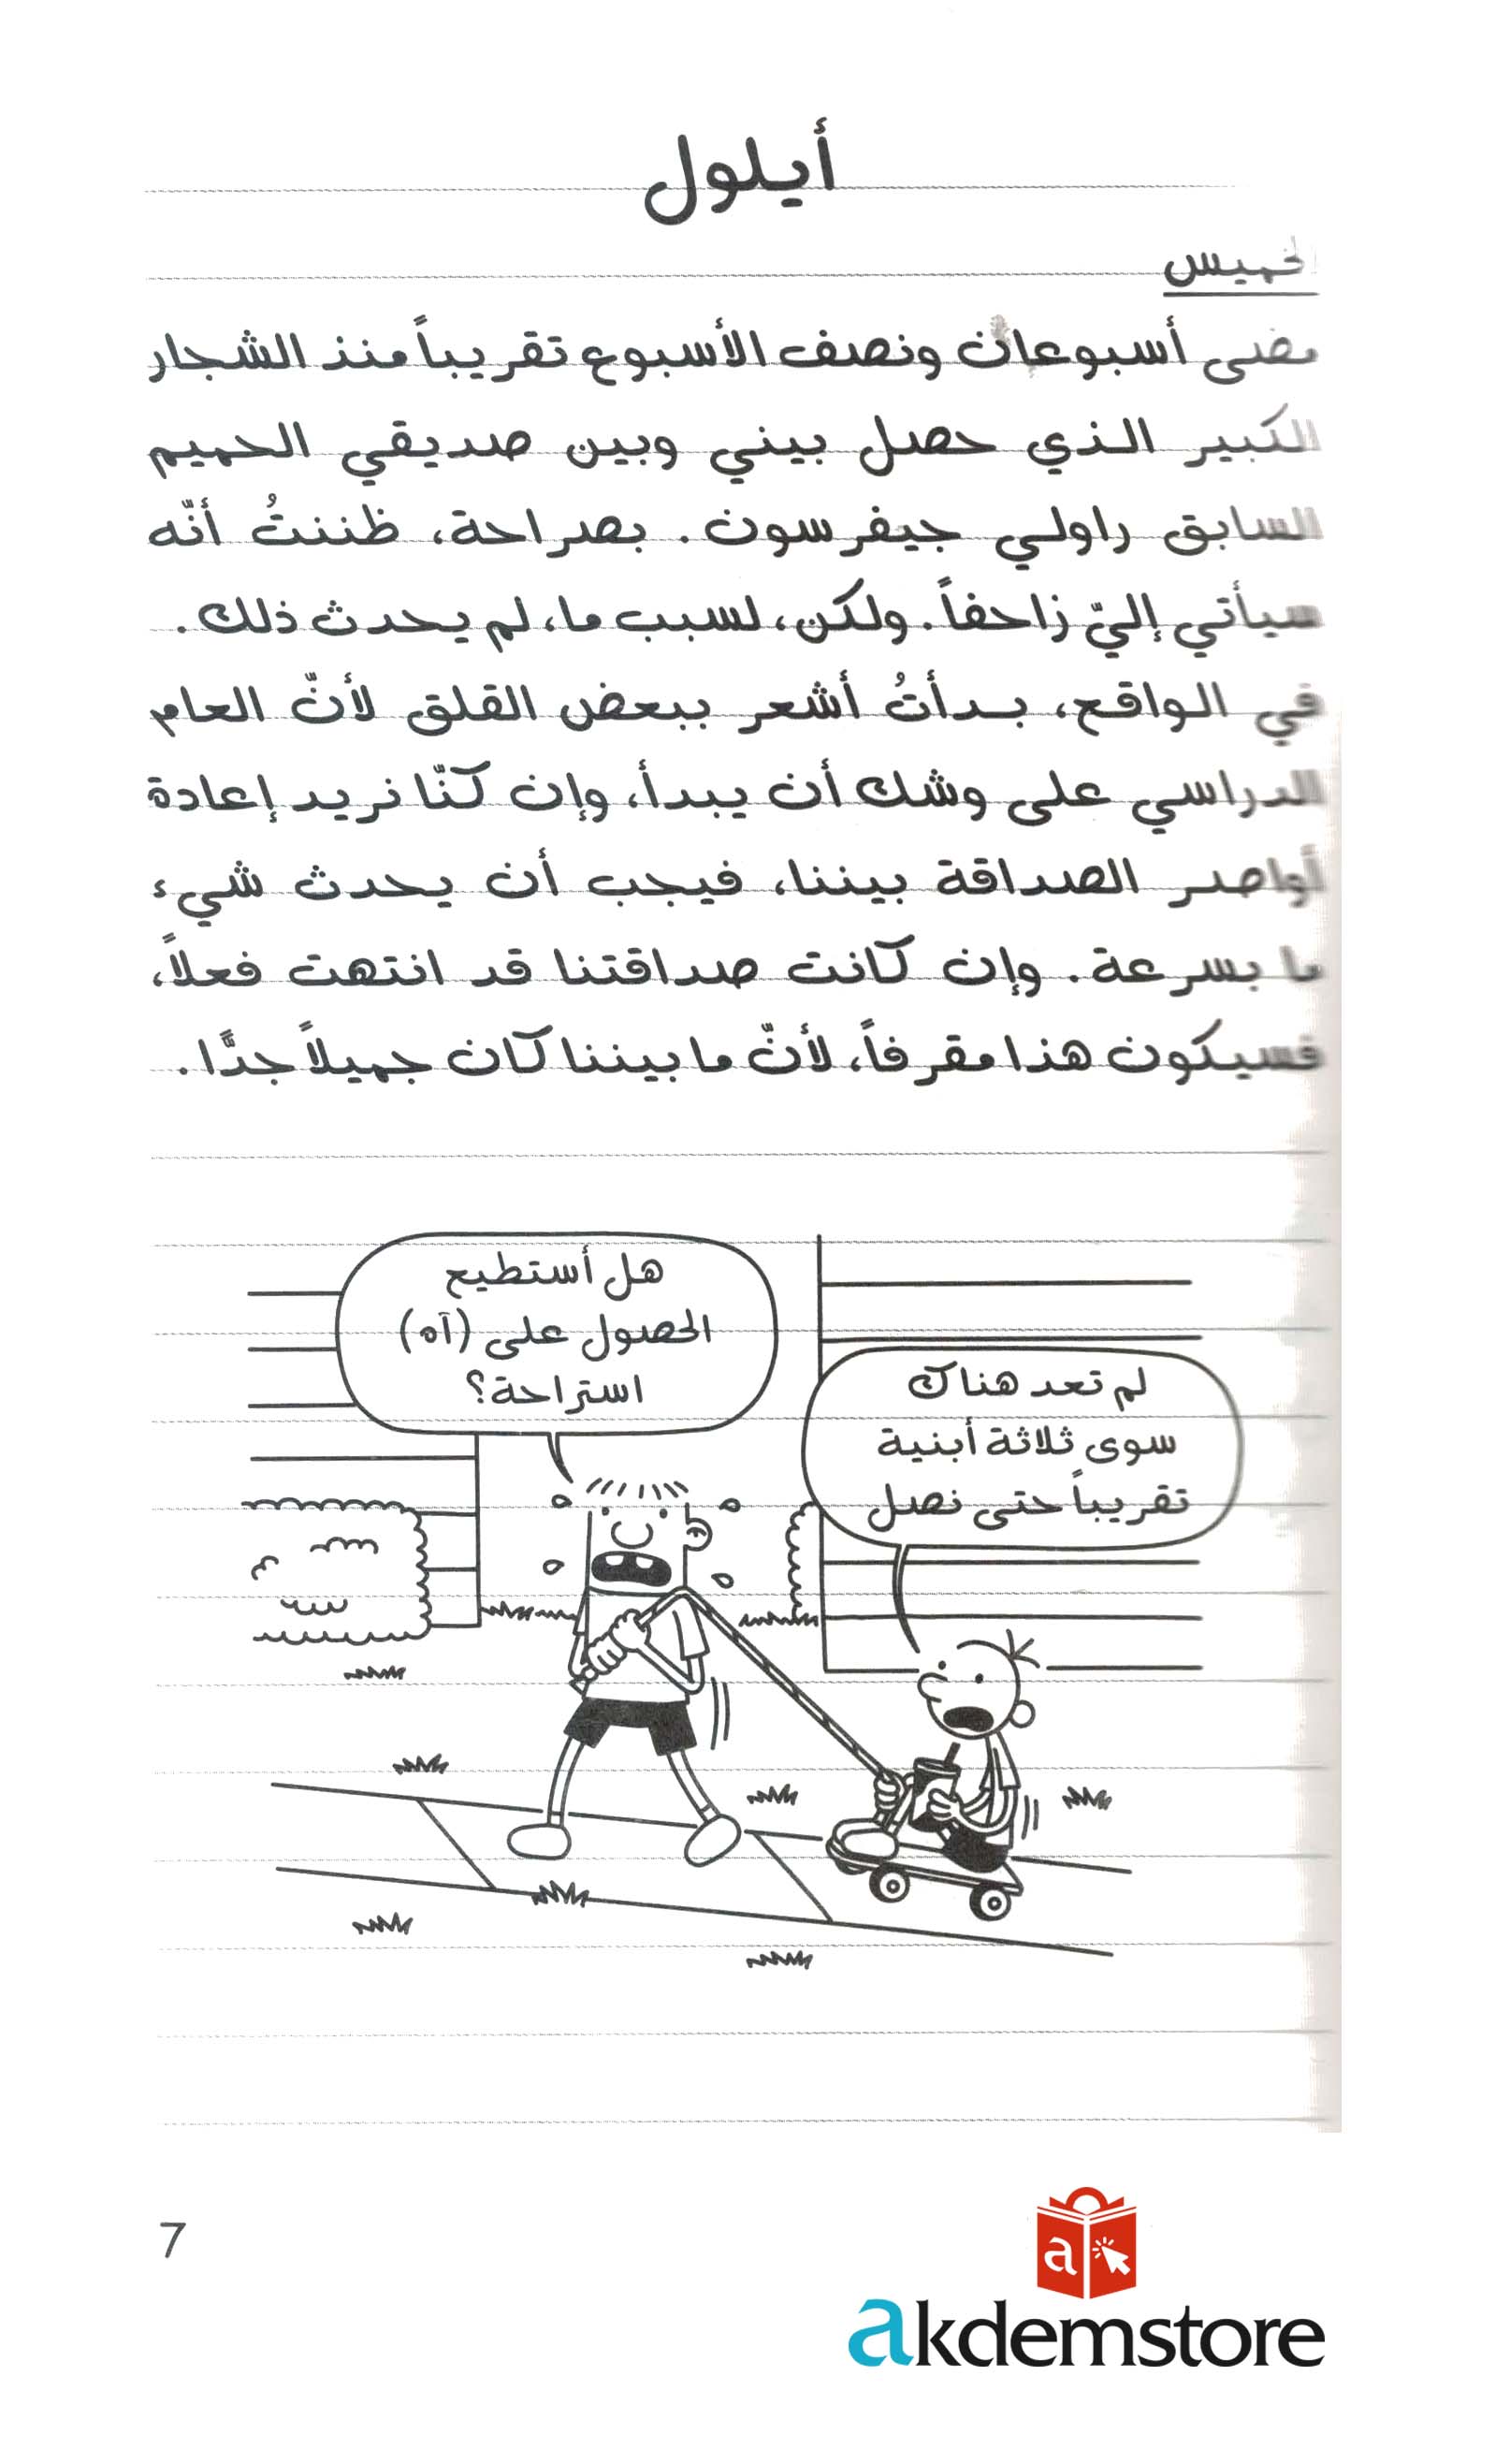 أيلول
الخميس
مضى أسبوعان ونصف الأسبوع تقريباً منذ الشجار
الكبير الذي حصل بيني وبين صديقي الحميم
السابق راولي جيفرسون. بصراحة، ظننتُ أنّه
سيأتي إليّ زاحفاً. ولكن، لسبب ما، لم يحدث ذلك.
في الواقع، بدأتُ أشعر ببعض القلق لأنّ العام
الدراسي على وشك أن يبدأ، وإن كنّا نريد إعادة
أواصر الصداقة بيننا، فيجب أن يحدث شيء
ما بسرعة. وإن كانت صداقتنا قد انتهت فعلاً،
فسيكون هذا مقرفاً، لأنّ ما بيننا كان جميلاً جدًّا.
هل أستطيع
الحصول على (آه)
استراحة؟
لم تعد هناك
سوى ثلاثة أبنية
تقريباً حتى نصل
7
a
akdemstore